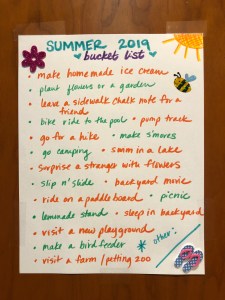 SUMMER 2019
bucket list
• make homemade ice cream
• plant flowers or a garden
• leave a sidewalk chalk note for a
friend
• bike ride to the pool • pump track
• go for a hike • make s'mores
• go camping • swim in a lake
• surprise a stranger with flowers
• slip n' slide • backyard movie
• ride on a paddle board • picnic
• lemonade stand • sleep in backyard
• visit a new playground
• make a bird feeder * other:
• visit a farm / petting zoo